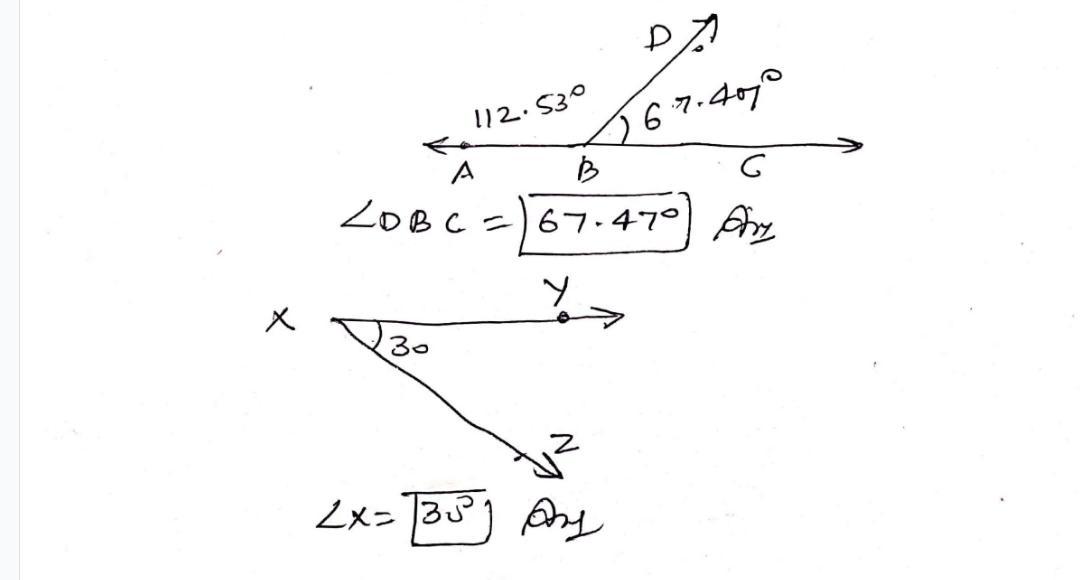 D
112.53° 67.47°
A B C
∠DBC = 67.47° Ans
Y
X
30
Z
∠X = 30° Ans